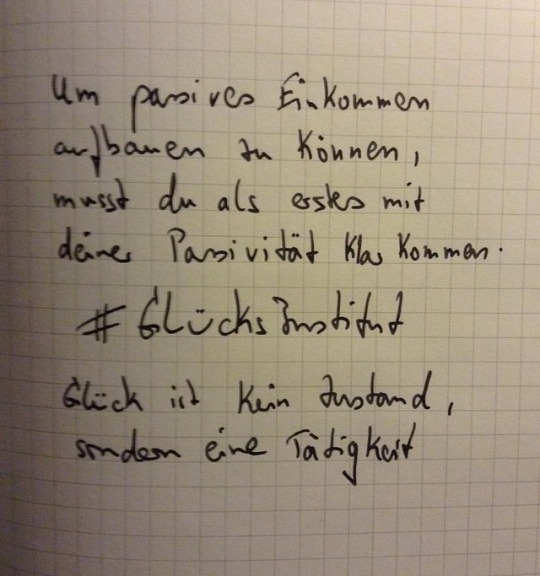 Um passives Einkommen
aufbauen zu können,
musst du als erstes mit
deiner Passivität klar kommen.
#GlücksInstitut
Glück ist kein Zustand,
sondern eine Tätigkeit